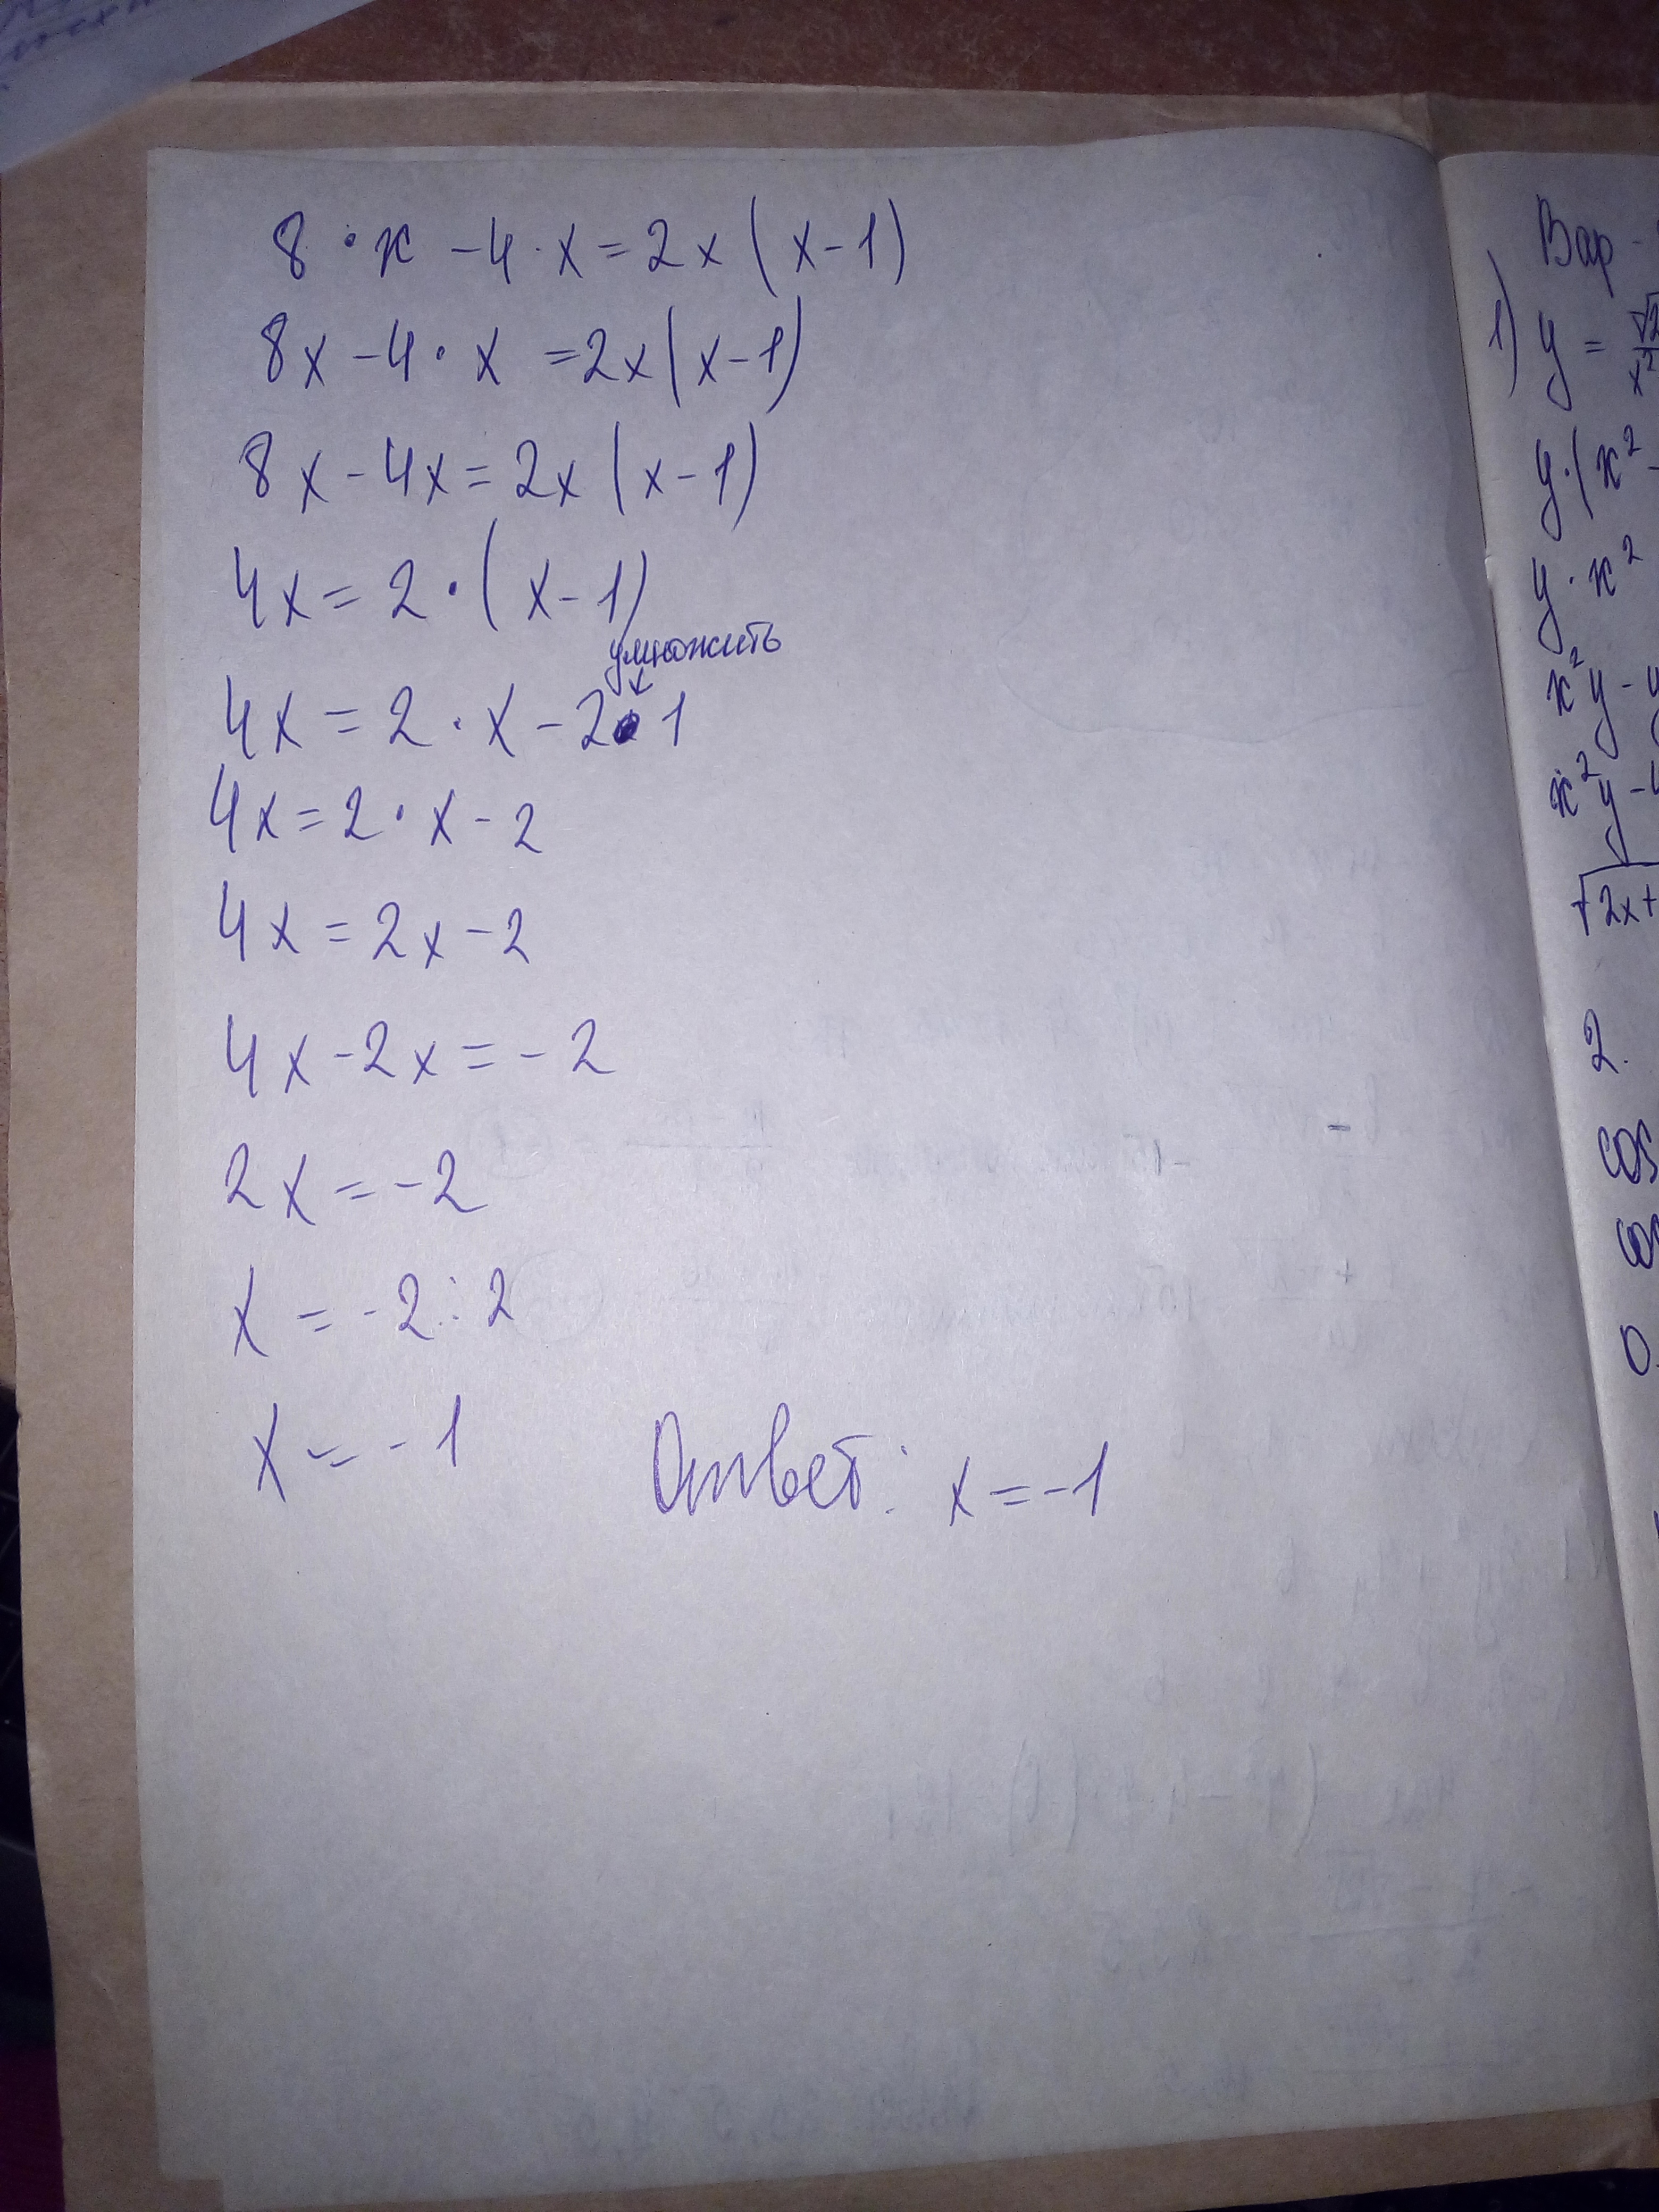 8 · x - 4 · x = 2x (x-1)
8x - 4 · x = 2x (x-1)
8x - 4x = 2x (x-1)
4x = 2 · (x-1)
умножить
4x = 2 · x - 2 · 1
4x = 2 · x - 2
4x = 2x - 2
4x - 2x = -2
2x = -2
x = -2 : 2
x = -1
Ответ: x = -1
Вар -
1) y = √2
x²
y · (x² -
y · x²
x²y - y
x²y - 4
√2x+
2.
cos
cos
0.